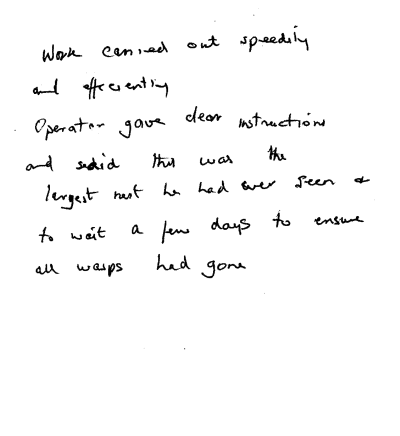 Work carried out speedily
and efficiently
Operator gave clear instructions
and said this was the
largest nest he had ever seen &
to wait a few days to ensure
all wasps had gone